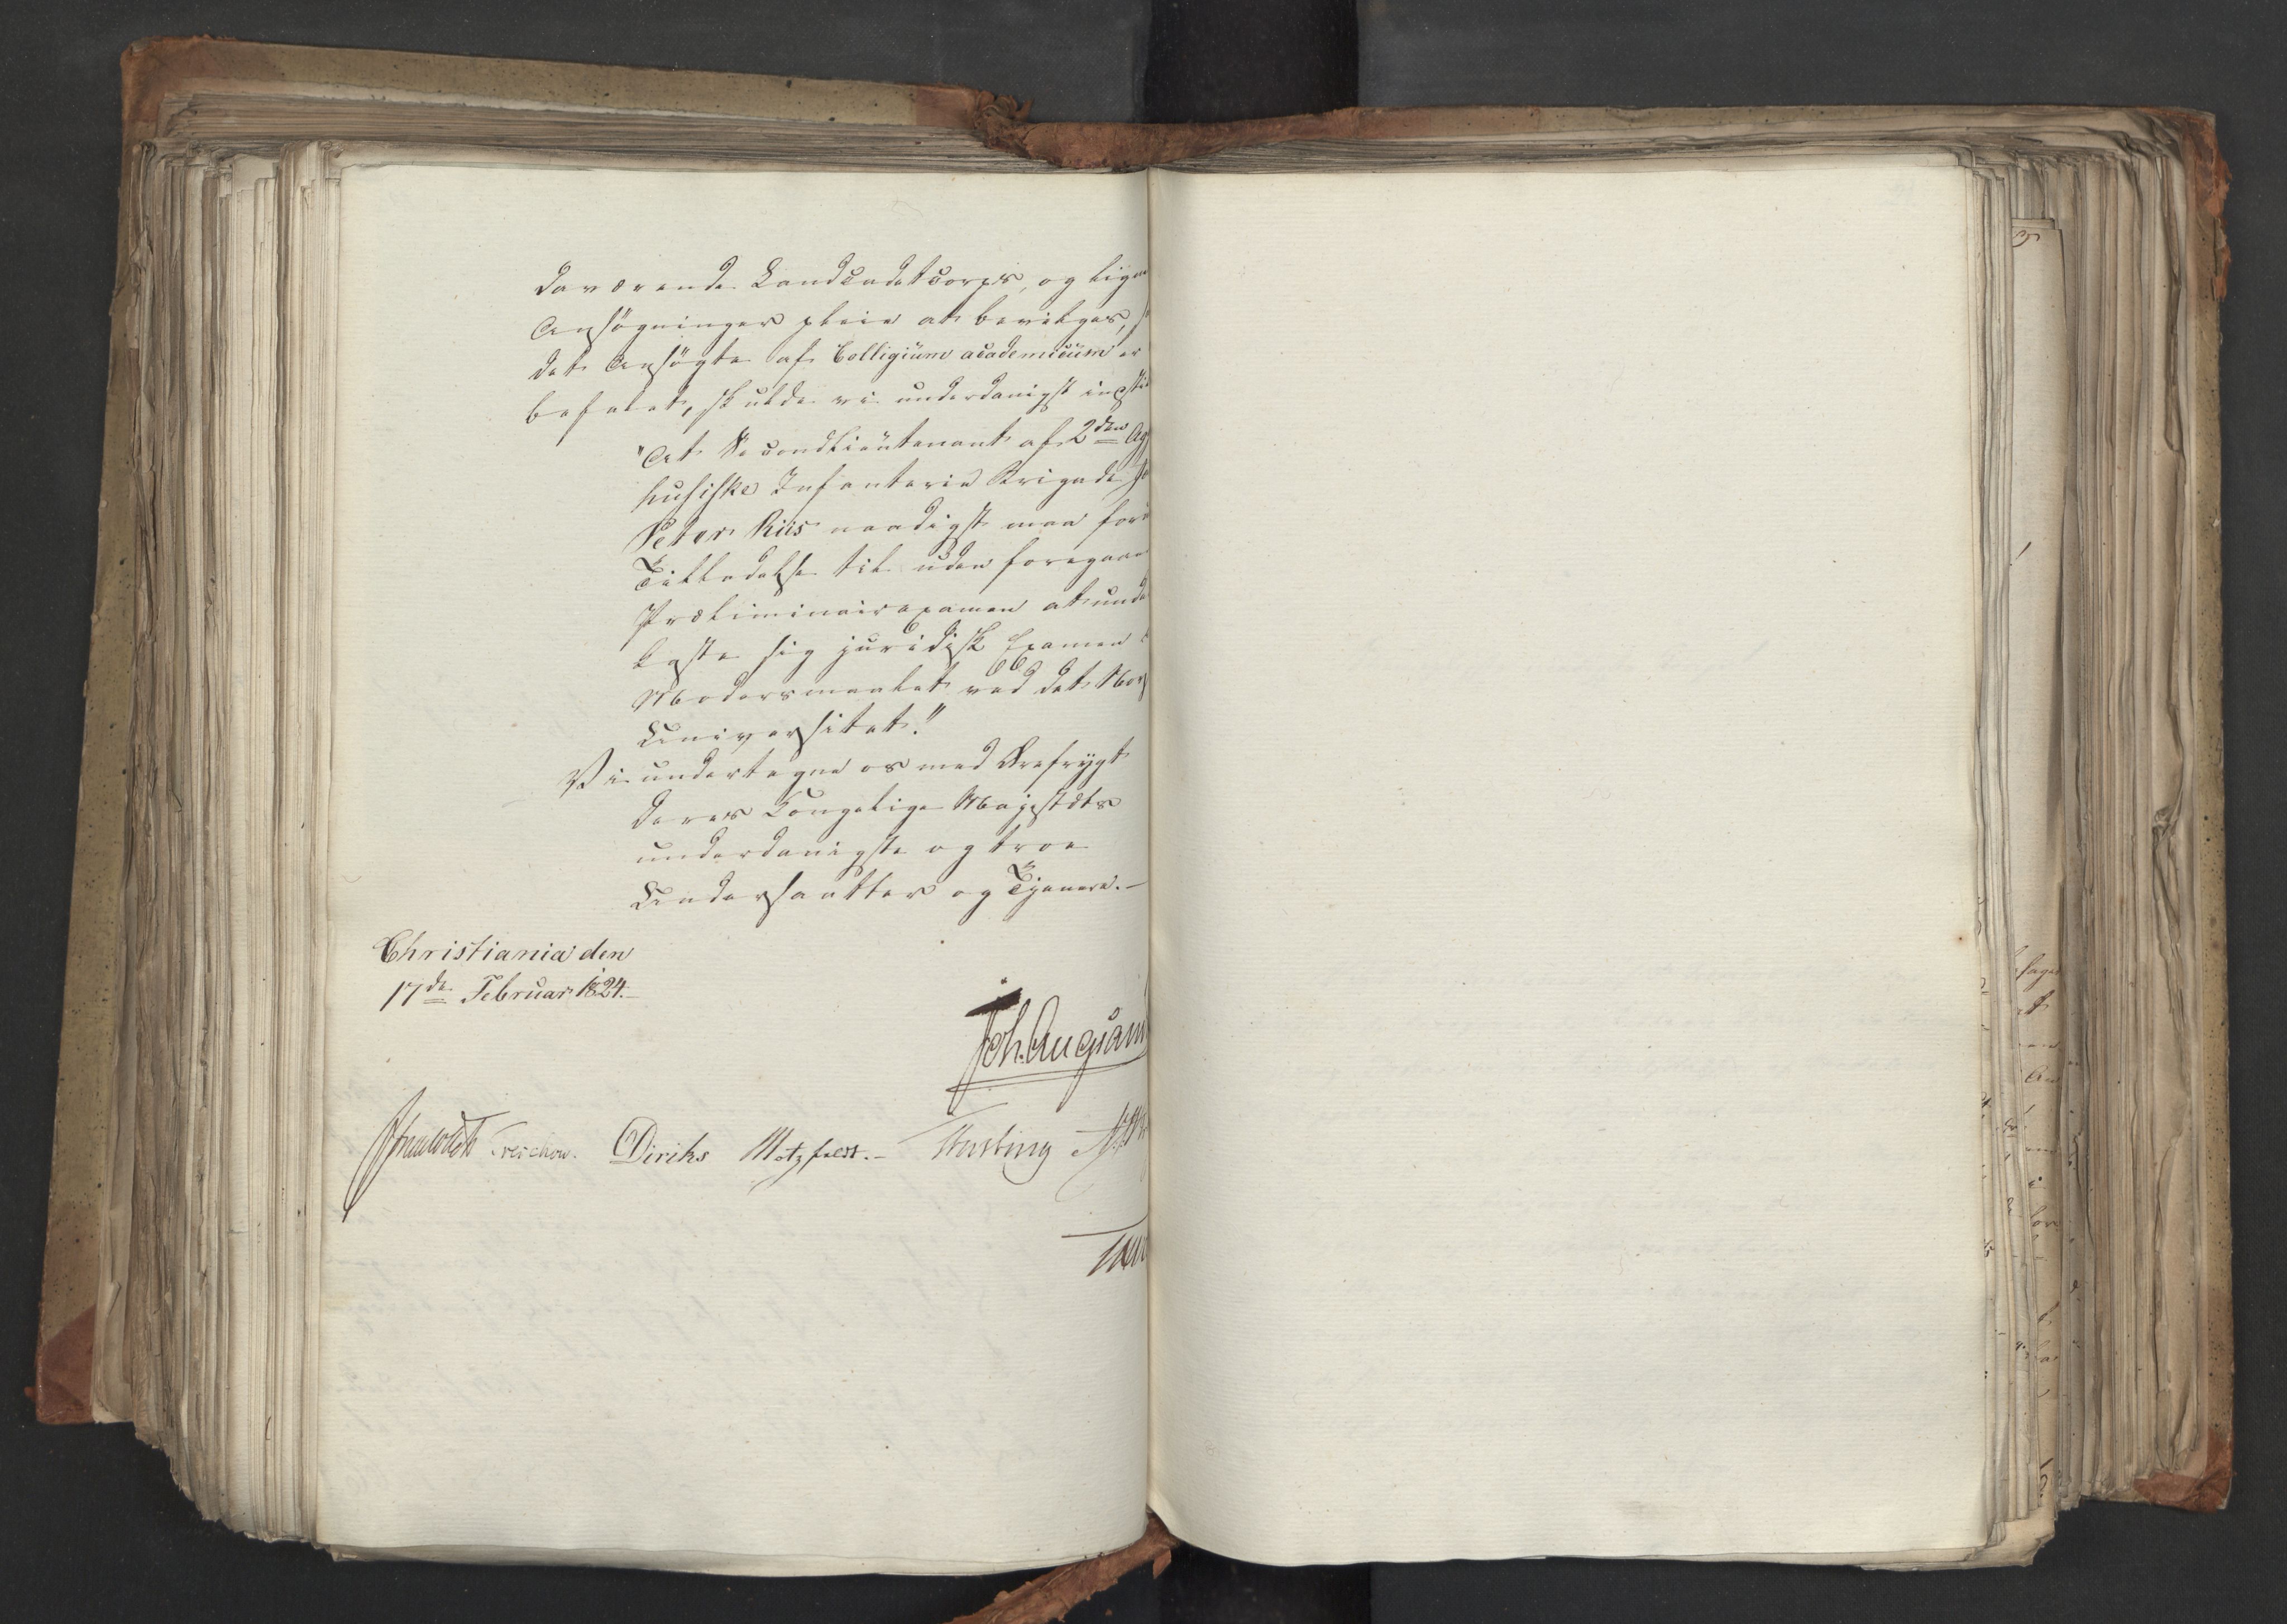 daværende Landcadetcorps, og lign
Ansøgninger pleie at bevilges, s
det Ansøgte af Collegium academicum er
befalet, skulde vi underdanigst indstil
"At Secondlieutenant af 2den Ag
huusiske Infanterie Brigade
Peter Riis naadigst maa for
Tilladelse til uden foregaae
Præliminairexamen at unde
kaste sig juridisk Examen
Modersmaalet ved det Nors
Universitet."
Vi undertegne os med Ærefrygt
Deres Kongelige Majestæts
underdanigste og troe
Undersaatter og Tjenere.—
Christiania den
17de Februar 1824.—
Joh. Aug. San
Treschow. Diriks Motzfeldt.—